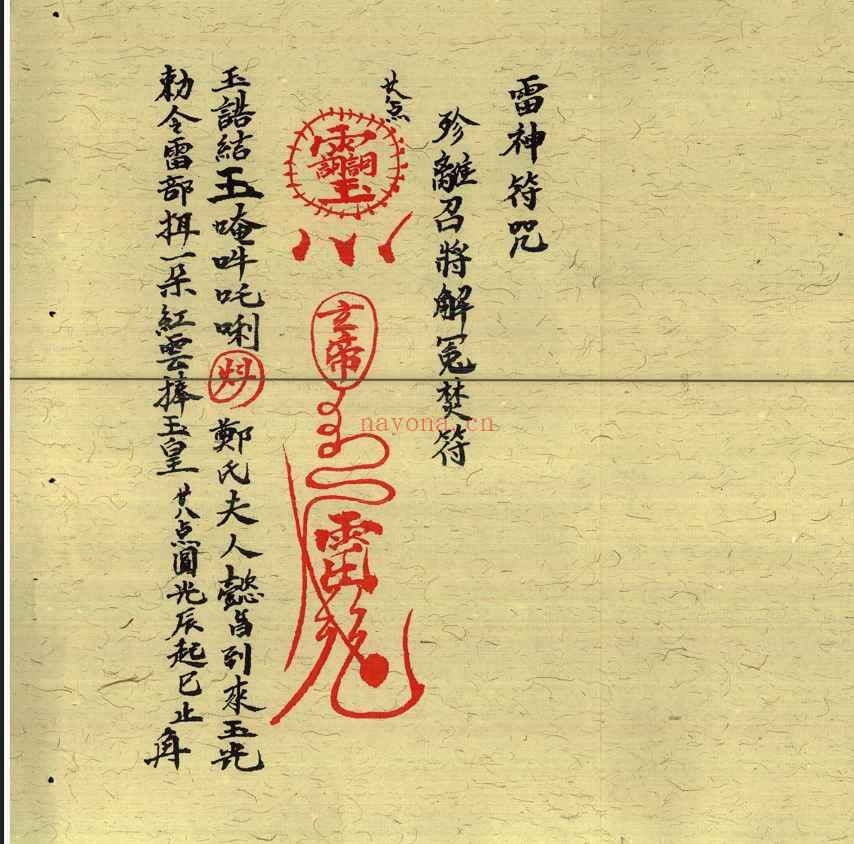 雷神符咒
珍離召將解冤焚符
廿八点
玄帝
雷
玉誥結玉唵吽吒唎 鄭氏夫人懿旨到來玉光
勅令雷部揖一朵紅雲捧玉皇 廿八点圓光辰起巳止
nayona.cn